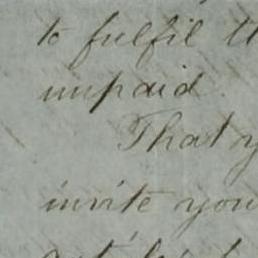 to fulfil
unpaid.
That
invite you